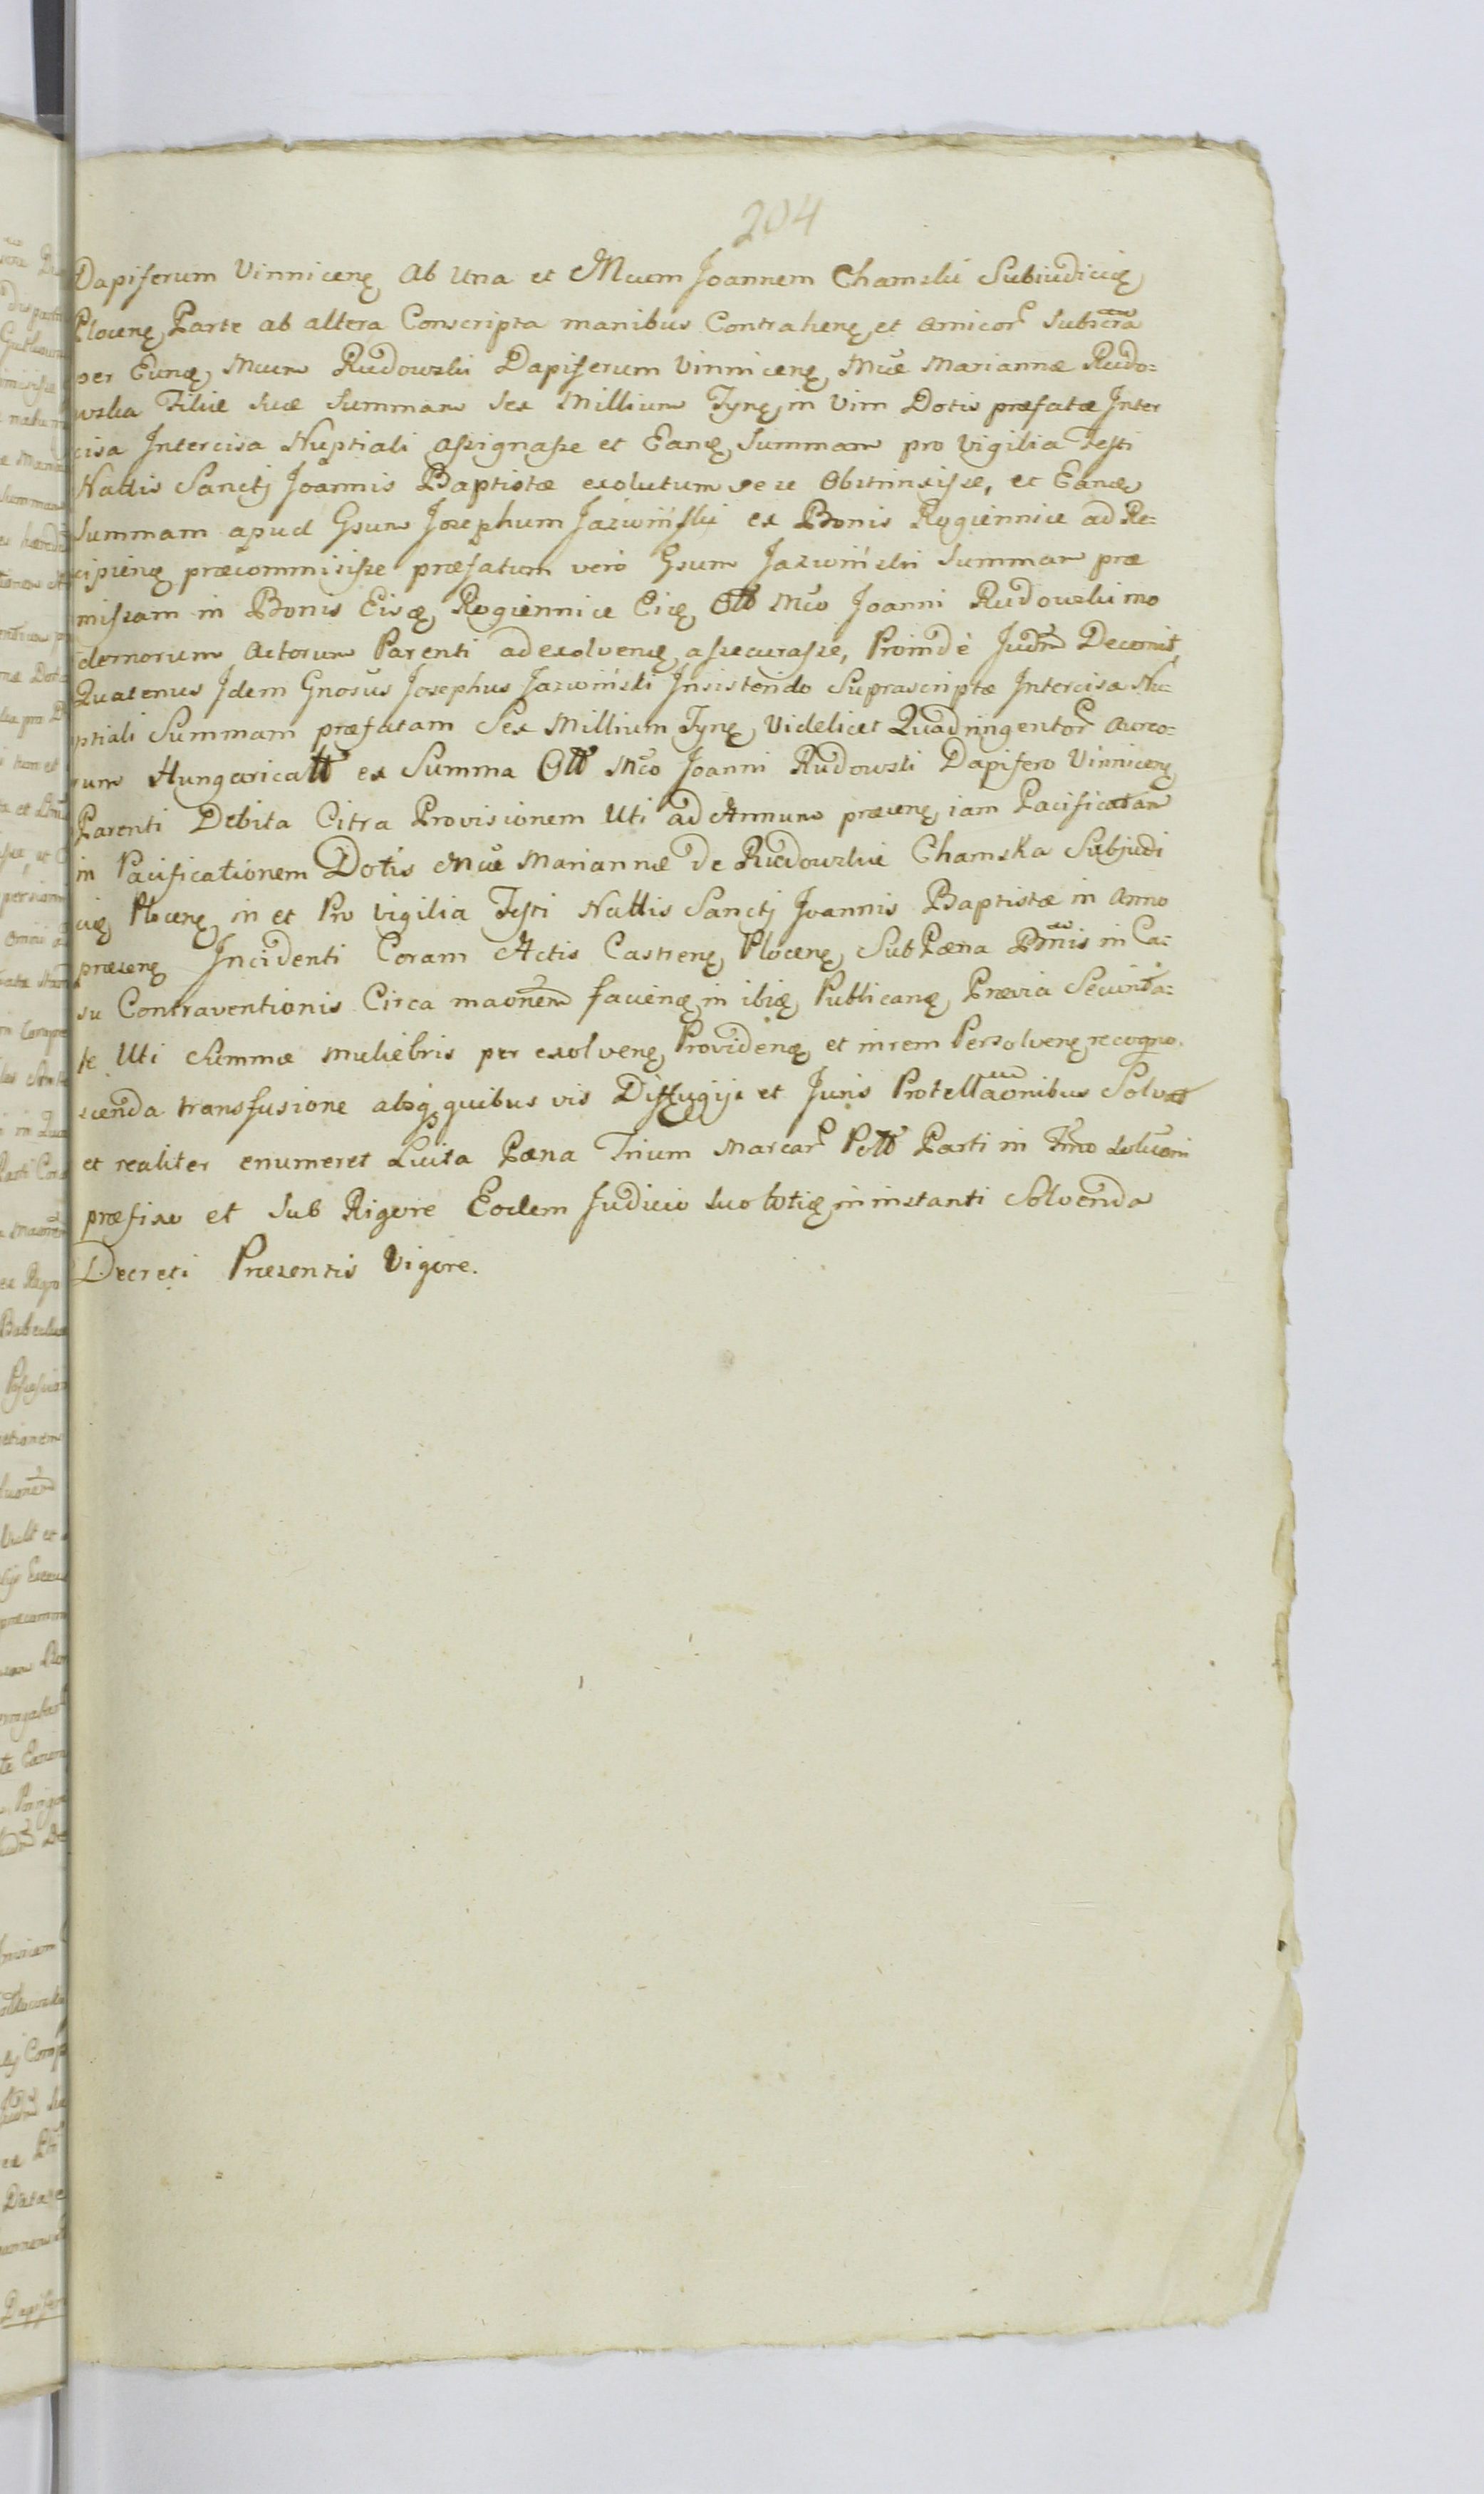 204
Dapiferum Vinnicenę Ab Una et Mcum Joannem Chamski Subiudicię
Plocenę Parte ab altera Conscripta manibus Contrahenę et Amicor Subscra
per Eundę Mcum Rudowski Dapiferum Vinnicenę Mcæ Mariannæ Rudo=
wska Filiæ suæ Summam Sex Millium Tynę in Vim Dotis præfatæ Inter
cisa Intercisa Nuptiali assignasse et Eandę Summam pro Vigilia Festi
Natlis Sanctj Joannis Baptistæ exolutum sese Obstrinxisse, et Eandę
Summam apud Gsum Josephum Jazwiński ex Bonis Rogiennice ad Re=
cipienę præcommisisse præfatum vero Gsum Jazwiński Summam præ
missam in Bonis Eisdę Rogiennice Eidę Olt Mco Joanni Rudowski mo
dernorum Actorum Parenti ad exolvenę assecurasse, Proindè Judm Decernit,
Quatenus Idem Gnosus Josephus Jazwiński Insistendo Suprascriptæ Intercisæ Nu=
ptiali Summam præfatam Sex Millium Tynę Videlicet Quadringentor Aureo=
rum Hungaricalt ex Summa Olt Mco Joanni Rudowski Dapifero Vinnicenę
Parenti Debita Citra Provisionem Uti ad Annum præsenę iam Pacificatam
in Pacificationem Dotis Mcæ Mariannæ De Rudowskie Chamska Subjudi
cię Plocenę in et Pro Vigilia Festi Natlis Sanctj Joannis Baptistæ in Anno
præsenę Incidenti Coram Actis Castrenę Plocenę Sub Pæna Bnnis in Ca=
su Contraventionis Circa maonem facienę in ibię Publicandę Prævia Securita=
te Uti Summæ muliebris per exolvenę Providendę et in rem Persolvenę recogno.
scenda transfusione absq quibus vis Diffugijs et Juris Protellaonibus Solvat
et realiter enumeret Luita Pæna Trium Marcar Polt Parti in Tmo Soluoni
præfixo et Sub Rigore Eodem Judicio suo totię in instanti Solvenda
Decreti Præsentis Vigore.